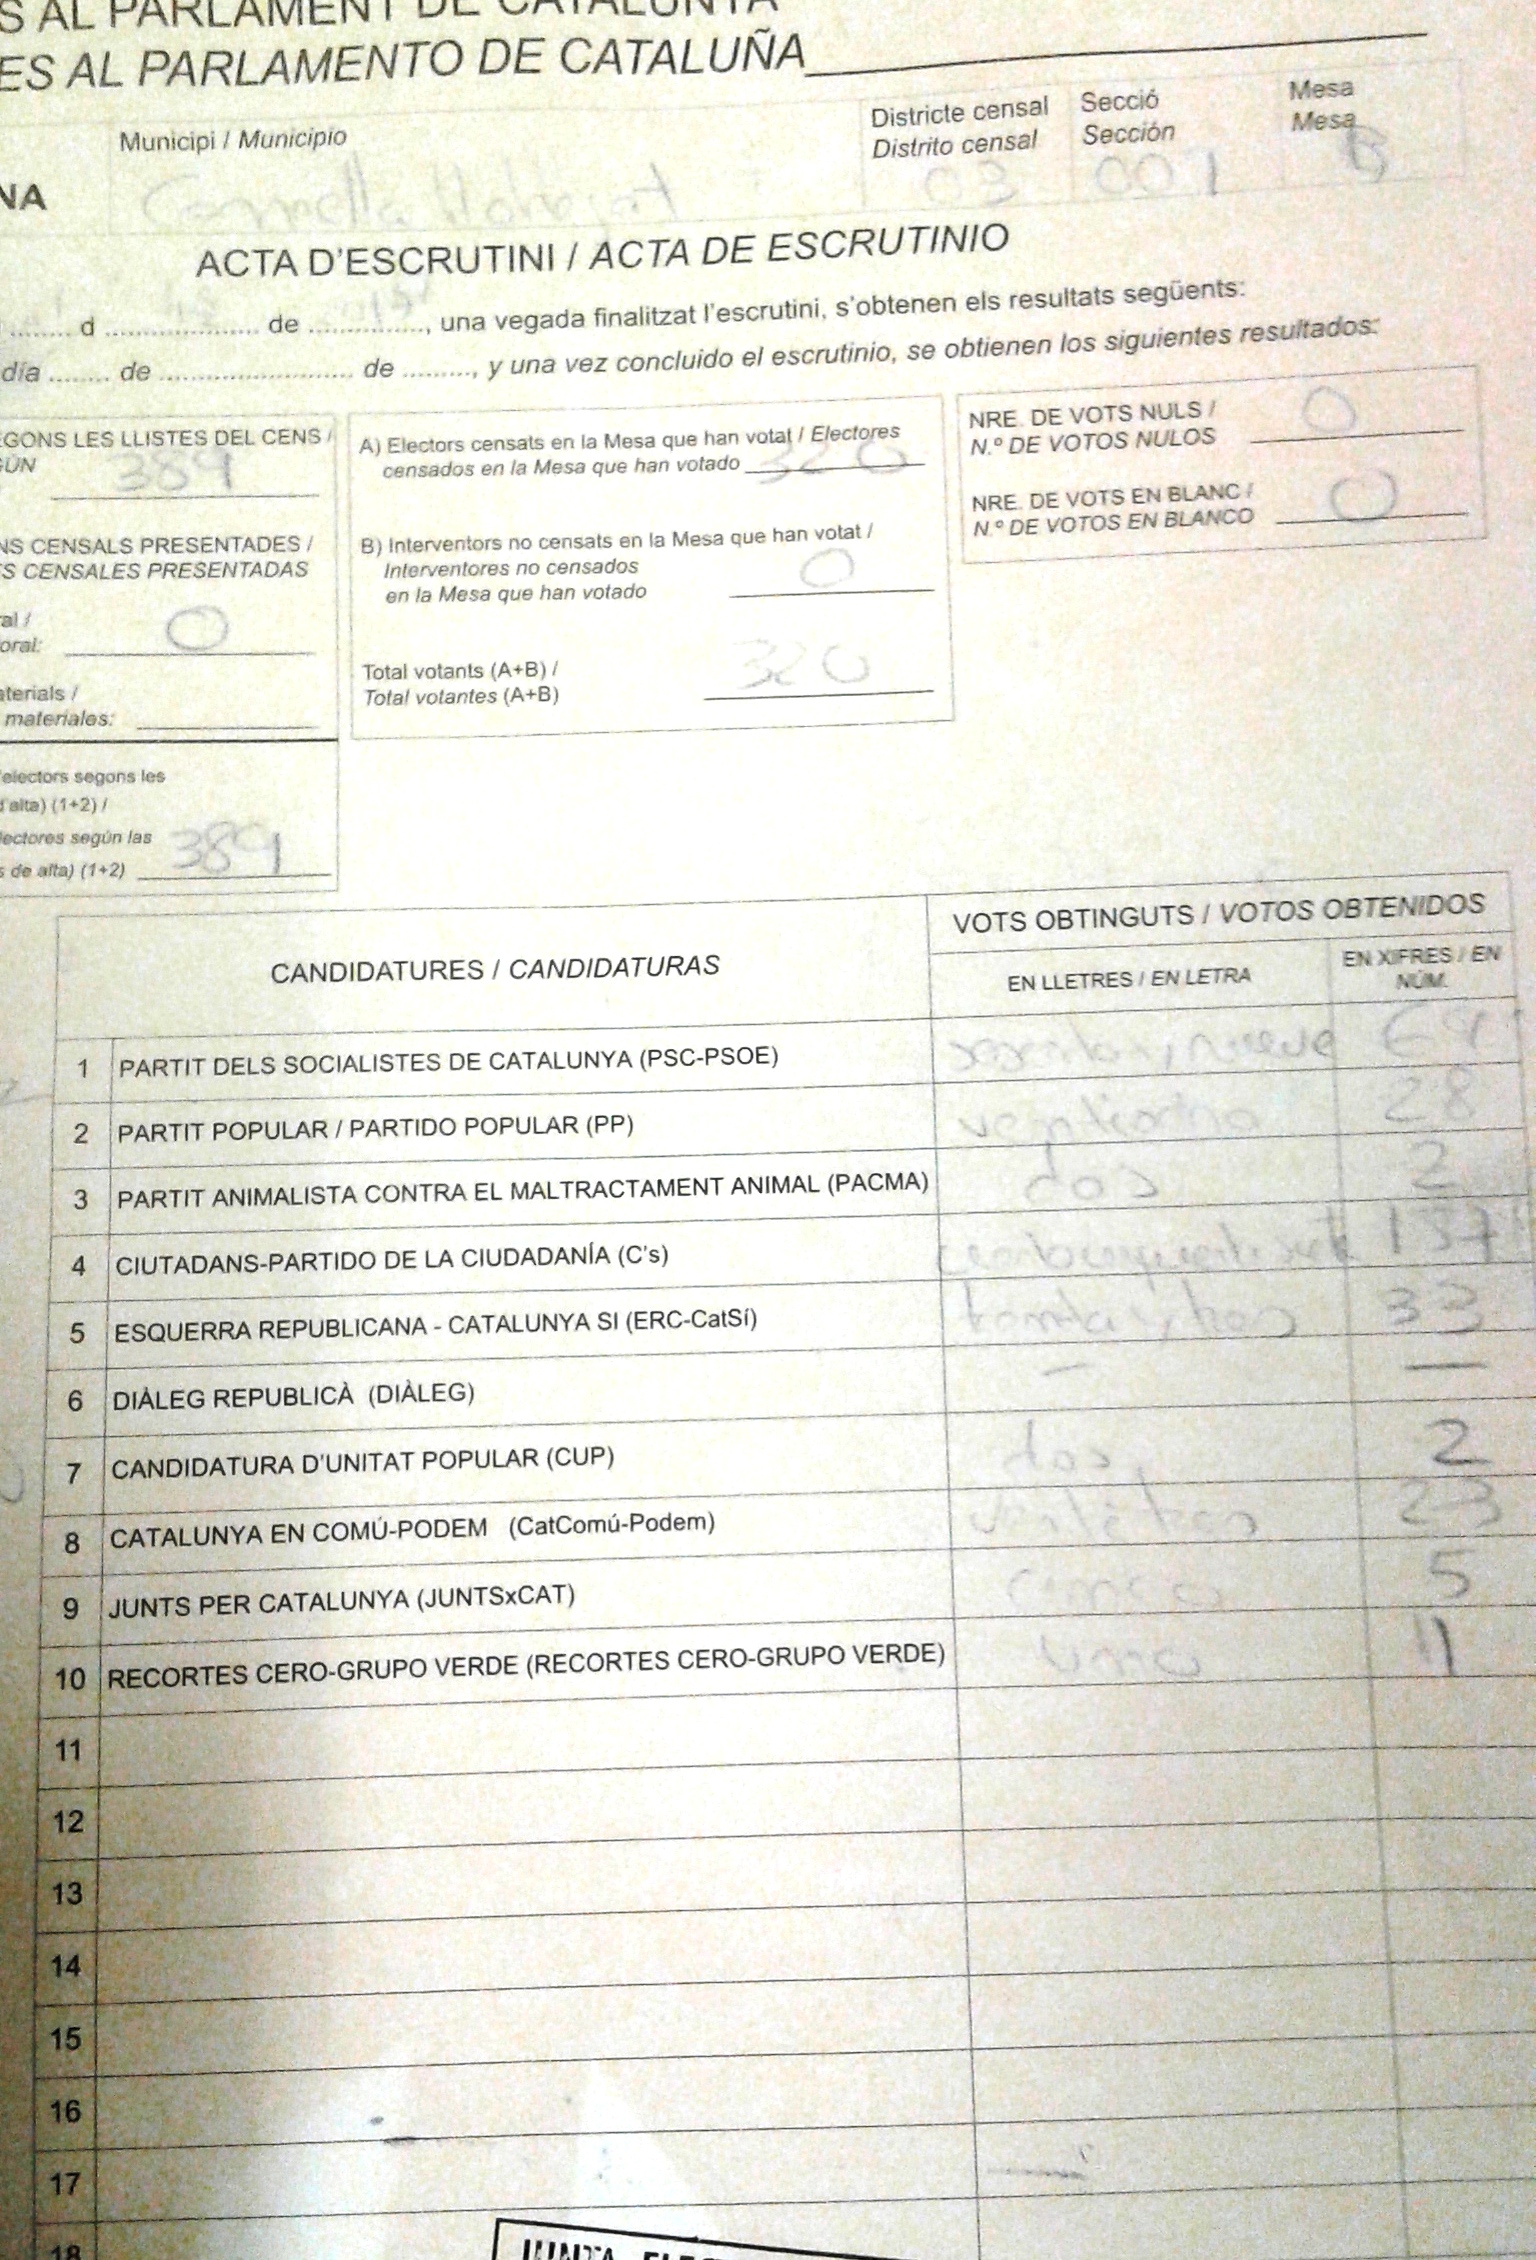 S AL PARLAMENT DE CATALUNYA
ES AL PARLAMENTO DE CATALUÑA
Municipi / Municipio
Districte censal Secció Mesa
Distrito censal Sección Mesa
NA
03 001 B
ACTA D'ESCRUTINI / ACTA DE ESCRUTINIO
........ d .................... de ..............., una vegada finalitzat l'escrutini, s'obtenen els resultats següents:
día ........ de ......................... de ........., y una vez concluido el escrutinio, se obtienen los siguientes resultados:
EGONS LES LLISTES DEL CENS /
GÚN
389
NS CENSALS PRESENTADES /
S CENSALES PRESENTADAS
ral /
oral: 0
aterials /
materiales:
electors segons les
d alta) (1+2) /
lectores según las
s de alta) (1+2) 389
A) Electors censats en la Mesa que han votat / Electores
censados en la Mesa que han votado 320
B) Interventors no censats en la Mesa que han votat /
Interventores no censados
en la Mesa que han votado 0
Total votants (A+B) /
Total votantes (A+B) 320
NRE. DE VOTS NULS /
N.º DE VOTOS NULOS 0
NRE. DE VOTS EN BLANC /
N.º DE VOTOS EN BLANCO 0
CANDIDATURES / CANDIDATURAS
VOTS OBTINGUTS / VOTOS OBTENIDOS
EN LLETRES / EN LETRA
EN XIFRES / EN
NÚM.
1 PARTIT DELS SOCIALISTES DE CATALUNYA (PSC-PSOE) nueve
2 PARTIT POPULAR / PARTIDO POPULAR (PP) 28
3 PARTIT ANIMALISTA CONTRA EL MALTRACTAMENT ANIMAL (PACMA) dos 2
4 CIUTADANS-PARTIDO DE LA CIUDADANÍA (C's) 157
5 ESQUERRA REPUBLICANA - CATALUNYA SI (ERC-CatSí) 33
6 DIÀLEG REPUBLICÀ (DIÀLEG) — —
7 CANDIDATURA D'UNITAT POPULAR (CUP) dos 2
8 CATALUNYA EN COMÚ-PODEM (CatComú-Podem) 23
9 JUNTS PER CATALUNYA (JUNTSxCAT) cinco 5
10 RECORTES CERO-GRUPO VERDE (RECORTES CERO-GRUPO VERDE) uno 1
11
12
13
14
15
16
17
18
JUNTA